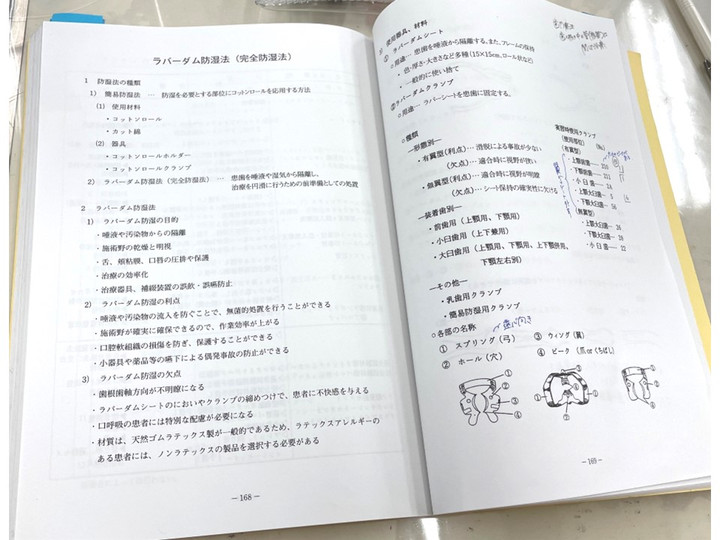 ラバーダム防湿法(完全防湿法)
1 防湿法の種類
1) 簡易防湿法 … 防湿を必要とする部位にコットンロールを応用する方法
(1) 使用材料
・コットンロール
・カット綿
(2) 器具
・コットンロールホルダー
・コットンロールクランプ
2) ラバーダム防湿法(完全防湿法) … 患歯を唾液や湿気から隔離し、
治療を円滑に行うための前準備としての処置
2 ラバーダム防湿法
1) ラバーダム防湿の目的
・唾液や汚染物からの隔離
・施術野の乾燥と明視
・舌、頬粘膜、口唇の圧排や保護
・治療の効率化
・治療器具、補綴装置の誤飲・誤嚥防止
2) ラバーダム防湿の利点
・唾液や汚染物の流入を防ぐことで、無菌的処置を行うことができる
・施術野が確実に確保できるので、作業効率が上がる
・口腔軟組織の損傷を防ぎ、保護することができる
・小器具や薬品等の嚥下による偶発事故の防止ができる
3) ラバーダム防湿の欠点
・歯根歯軸方向が不明瞭になる
・ラバーダムシートのにおいやクランプの締めつけで、患者に不快感を与える
・口呼吸の患者には特別な配慮が必要になる
・材質は、天然ゴムラテックス製が一般的であるため、ラテックスアレルギーの
ある患者には、ノンラテックスの製品を選択する必要がある
―168―
使用器具、材料
① ラバーダムシート
○用途… 患歯を唾液から隔離する。また、フレームの保持
・色・厚さ・大きさなど多種(15×15cm、ロール状など)
・一般的に使い捨て
②ラバーダムクランプ
○用途… ラバーシートを患歯に固定する。
○種類
―形態別―
・有翼型(利点)… 滑脱による事故が少ない
(欠点)… 適合時に視野が狭い
・無翼型(利点)… 適合時に視野が明瞭
(欠点)… シート保持の確実性に欠ける
―装着歯別―
・前歯用(上顎用、下顎用)
・小臼歯用(上下兼用)
・大臼歯用(上顎用、下顎用、上下顎併用、
下顎左右別)
―その他―
・乳歯用クランプ
・簡易防湿用クランプ
実習時使用クランプ
(使用部位) (No)
(有翼型)
・上顎前歯 ― 210
・下顎前歯 ― 211
・小臼歯 ― 24
・上顎大臼歯 ―
・下顎大臼歯 ― 56
(無翼型)
・上顎大臼歯 ― 26
・下顎大臼歯 ― 26
・小臼歯 ― 22
○各部の名称
① スプリング(弓) ③ ウィング(翼)
② ホール(穴) ④ ビーク(爪orくちばし)
①
②
③
④
①
②
③
④
①
②
④
―169―